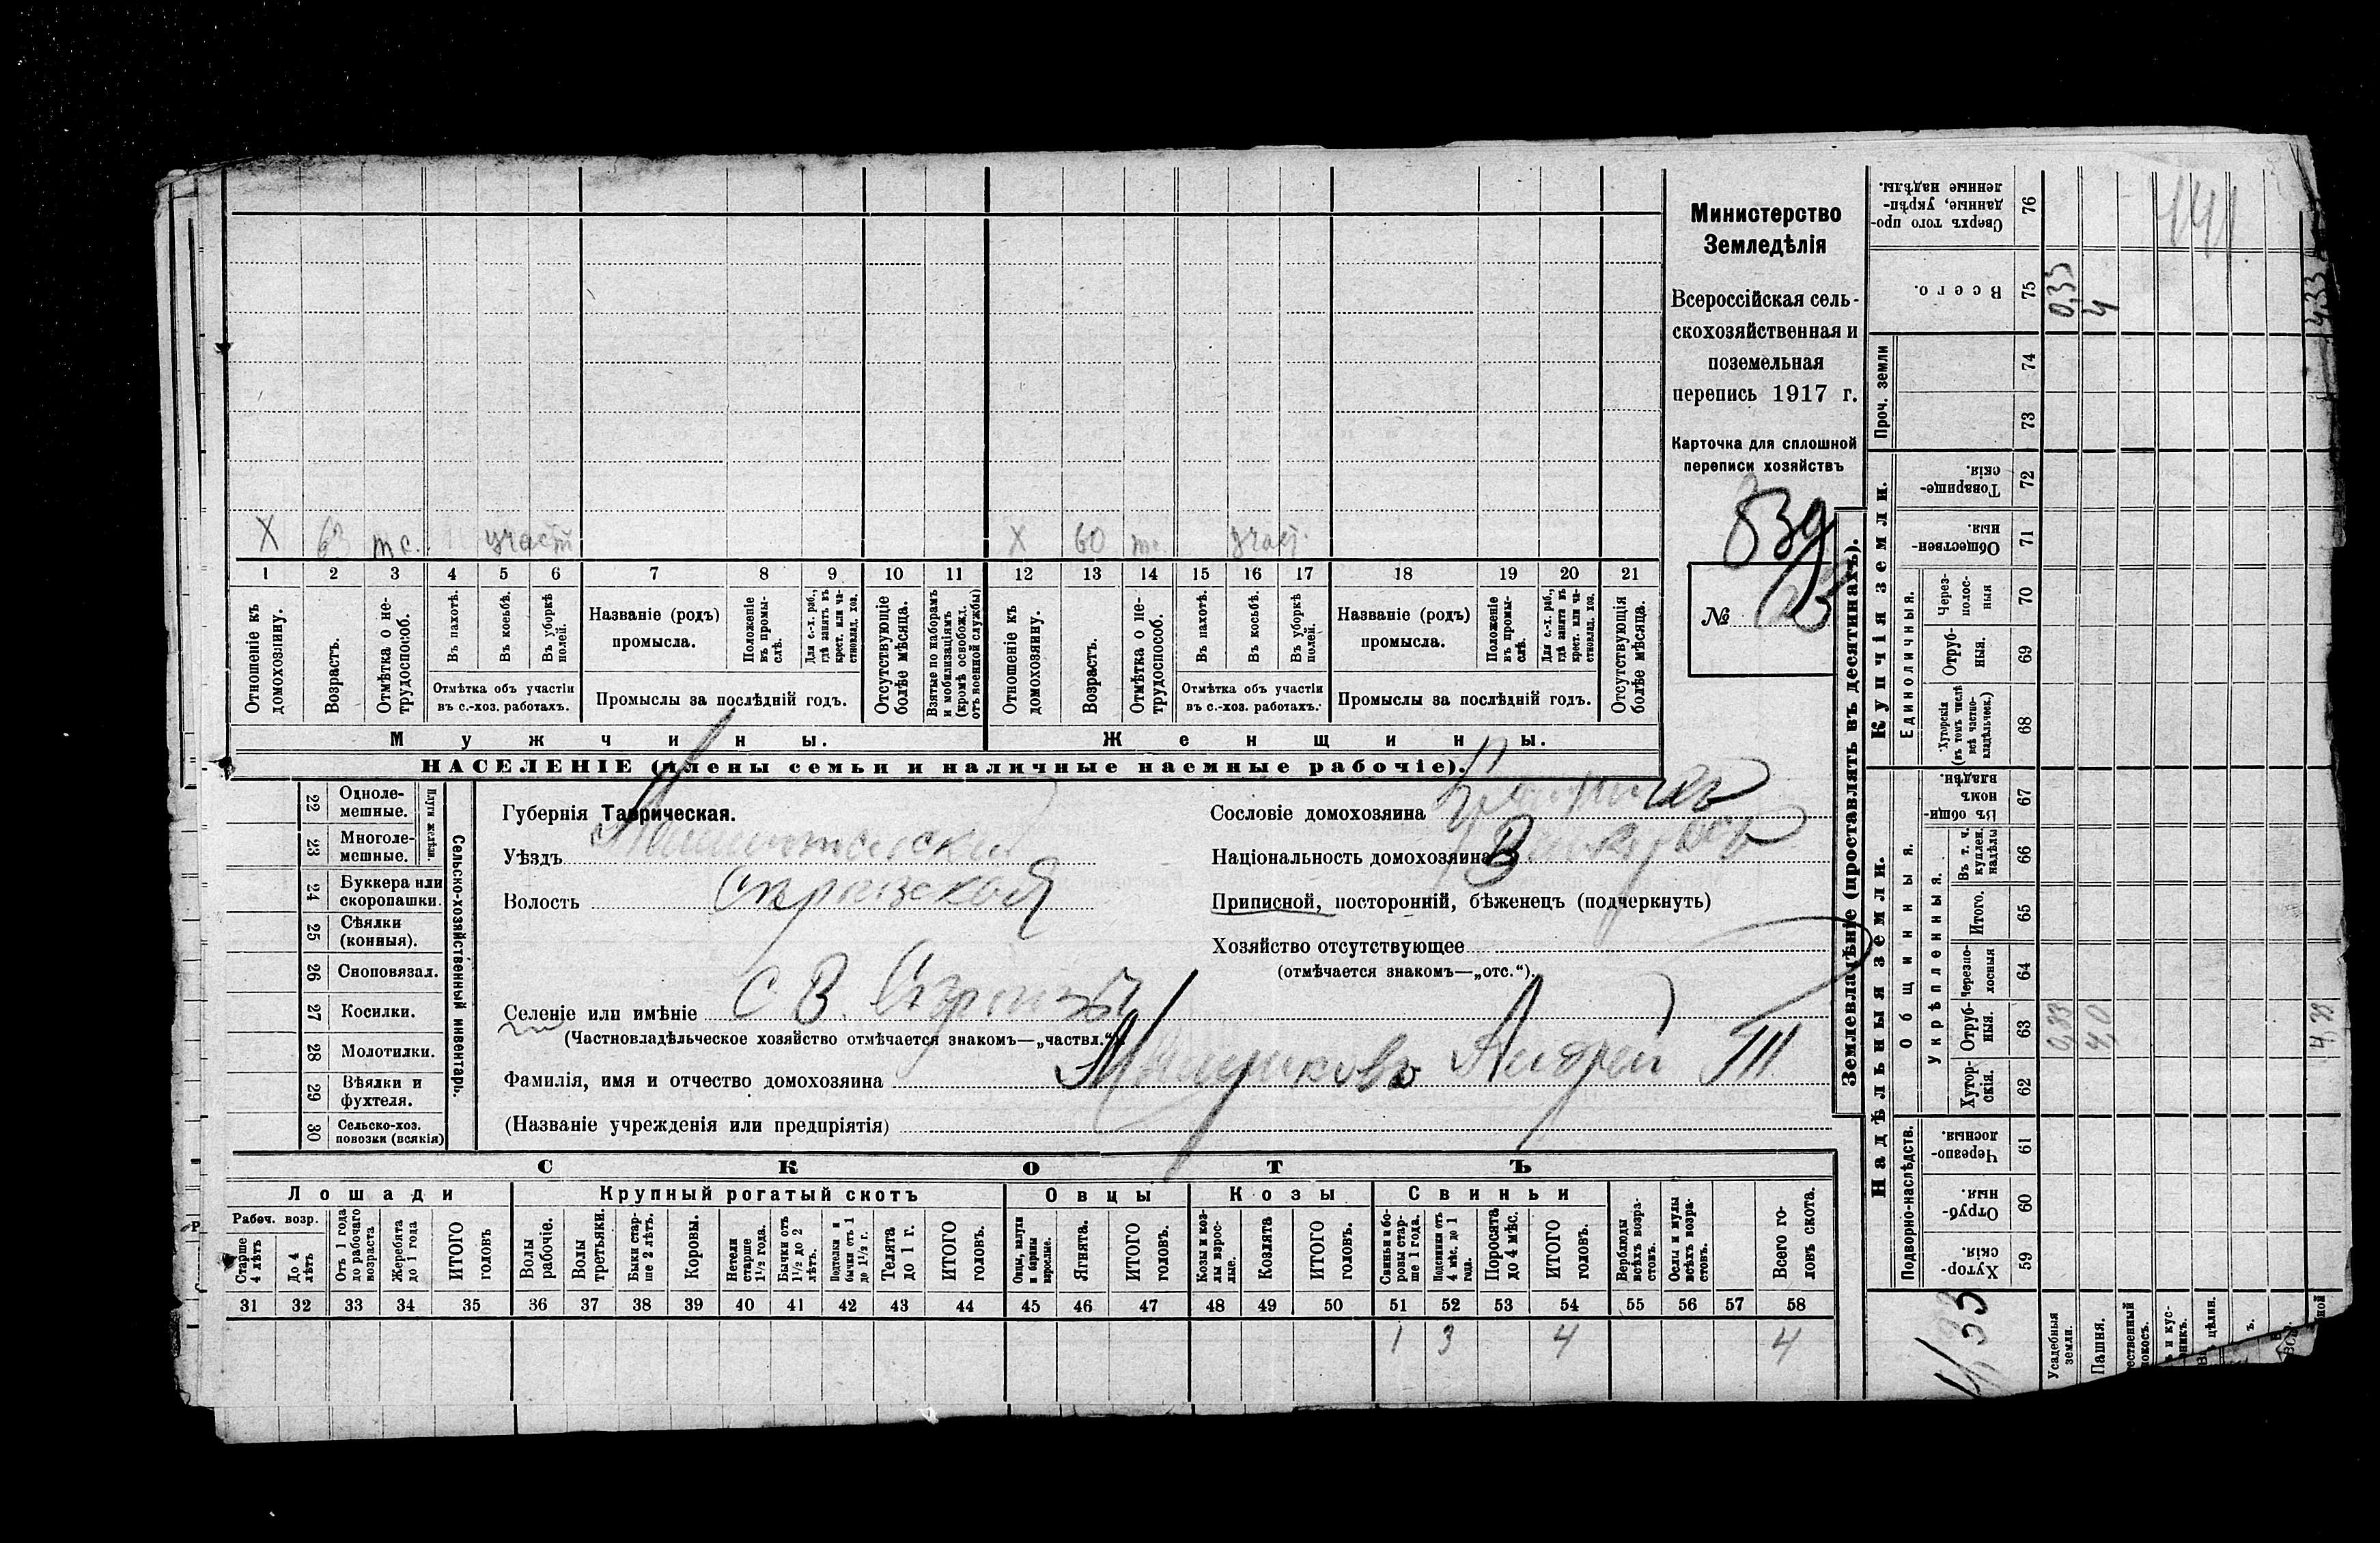 Министерство
Земледѣлія
Всероссійская сель-
скохозяйственная и
поземельная
перепись 1917 г.
Карточка для сплошной
переписи хозяйствъ
839
№ 23
X 63 тс. участ X 60 тс. участ.
1 2 3 4 5 6 7 8 9 10 11 12 13 14 15 16 17 18 19 20 21
Отношеніе къ домохозяину.
Возрастъ.
Отмѣтка о не-
трудоспособ.
Въ пахотѣ.
Въ косьбѣ.
Въ уборкѣ полей.
Отмѣтка объ участіи
въ с.-хоз. работахъ.
Названіе (родъ)
промысла.
Положеніе въ промы-
слѣ.
Для с.-х. раб., гдѣ занятъ въ крест. или ча-
стновлад. хоз.
Промыслы за послѣдній годъ.
Отсутствующіе болѣе мѣсяца.
Взятые по наборамъ и мобилизаціямъ (кромѣ освобожд. отъ военной службы)
Отношеніе къ домохозяину.
Возрастъ.
Отмѣтка о не-
трудоспособ.
Въ пахотѣ.
Въ косьбѣ.
Въ уборкѣ полей.
Отмѣтка объ участіи
въ с.-хоз. работахъ.
Названіе (родъ)
промысла.
Положеніе въ промы-
слѣ.
Для с.-х. раб., гдѣ занятъ въ крест. или ча-
стновлад. хоз.
Промыслы за послѣдній годъ.
Отсутствующія болѣе мѣсяца.
Мужчины. Женщины.
НАСЕЛЕНІЕ (члены семьи и наличные наемные рабочіе).
Сельско-хозяйственный инвентарь.
Плуги желѣзн.
22 Одноле-
мешные.
23 Многоле-
мешные.
24 Буккера или
скоропашки.
25 Сѣялки
(конныя).
26 Сноповязал.
27 Косилки.
28 Молотилки.
29 Вѣялки и
фухтеля.
30 Сельско-хоз.
повозки (всякія)
Губернія Таврическая.
Уѣздъ
Волость
Селеніе или имѣніе С В.
(Частновладѣльческое хозяйство отмѣчается знакомъ—„частвл.“).
Фамилія, имя и отчество домохозяина Андрей Т
(Названіе учрежденія или предпріятія)
Сословіе домохозяина
Національность домохозяина
Приписной, посторонній, бѣженецъ (подчеркнуть)
Хозяйство отсутствующее
(отмѣчается знакомъ—„отс.“).
СКОТЪ
Лошади Крупный рогатый скотъ Овцы Козы Свиньи
Рабоч. возр.
Старше 4 лѣтъ
До 4 лѣтъ
Отъ 1 года до рабочаго возраста
Жеребята до 1 года
ИТОГО головъ
Волы рабочіе.
Волы третьяки.
Быки стар-
ше 2 лѣтъ.
Коровы.
Нетели старше 1½ года.
Бычки отъ 1½ до 2 лѣтъ.
Подтелки и бычки отъ 1 до 1½ г.
Телята до 1 г.
ИТОГО головъ.
Овцы, валухи и бараны взрослые.
Ягнята.
ИТОГО головъ.
Козы и коз-
лы взрос-
лые.
Козлята
ИТОГО головъ.
Свиньи и бо-
ровы стар-
ше 1 года.
Подсвинки отъ 4 мѣс. до 1 года.
Поросята до 4 мѣс.
ИТОГО головъ.
Верблюды всѣхъ возра-
стовъ.
Ослы и мулы всѣхъ возра-
стовъ.
Всего го-
ловъ скота.
31 32 33 34 35 36 37 38 39 40 41 42 43 44 45 46 47 48 49 50 51 52 53 54 55 56 57 58
1 3 4 4
Землевладѣніе (проставлять въ десятинахъ).
Надѣльныя земли. Купчія земли.
Подворно-наслѣдств.
Общинныя.
Укрѣпленныя.
Единоличныя.
Проч. земли
Хутор-
скія. 59
Отруб-
ныя. 60
Черезпо-
лосныя. 61
Хутор-
скія. 62
Отруб-
ныя. 63
Черезпо-
лосныя 64
Итого. 65
Въ т. ч. куплен. надѣлы 66
Въ общин-
номъ владѣн. 67
Хуторскія (въ томъ числѣ всѣ частно-
владѣльческ.) 68
Отруб-
ныя. 69
Через-
полос-
ныя 70
Обществен-
ныя. 71
Товарище-
скія. 72
73
74
Всего. 75
Сверхъ того про-
данные, укрѣп-
ленные надѣлы. 76
Усадебныя земли. 0,33 0,33
Пашня. 4,0 4
4,33 4,33
4,33
141